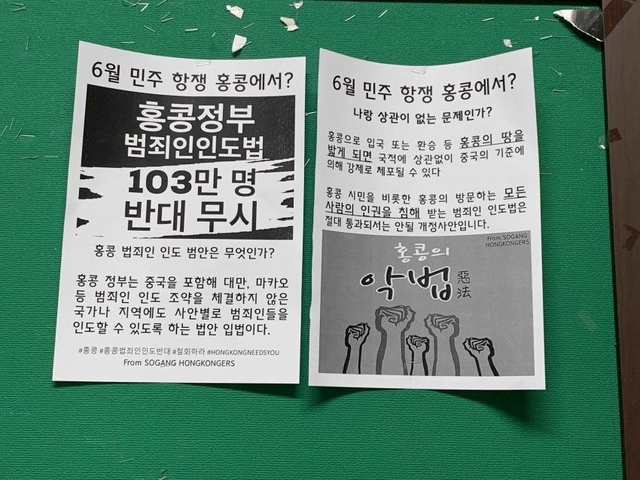 6월 민주 항쟁 홍콩에서?
홍콩정부
범죄인인도법
103만 명
반대 무시
홍콩 법죄인 인도 법안은 무엇인가?
홍콩 정부는 중국을 포함해 대만, 마카오
등 범죄인 인도 조약을 체결하지 않은
국가나 지역에도 사안별로 범죄인들을
인도할 수 있도록 하는 법안 입법이다.
#홍콩 #홍콩법죄인인도반대 #철회하라 #HONGKONGNEEDSYOU
From SOGANG HONGKONGERS
6월 민주 항쟁 홍콩에서?
나랑 상관이 없는 문제인가?
홍콩으로 입국 또는 환승 등 홍콩의 땅을
밟게 되면 국적에 상관없이 중국의 기준에
의해 강제로 체포될 수 있다
홍콩 시민을 비롯한 홍콩의 방문하는 모든
사람의 인권을 침해 받는 범죄인 인도법은
절대 통과되서는 안될 개정사안입니다.
From SOGANG
HONGKONGERS
홍콩의
악법 惡法